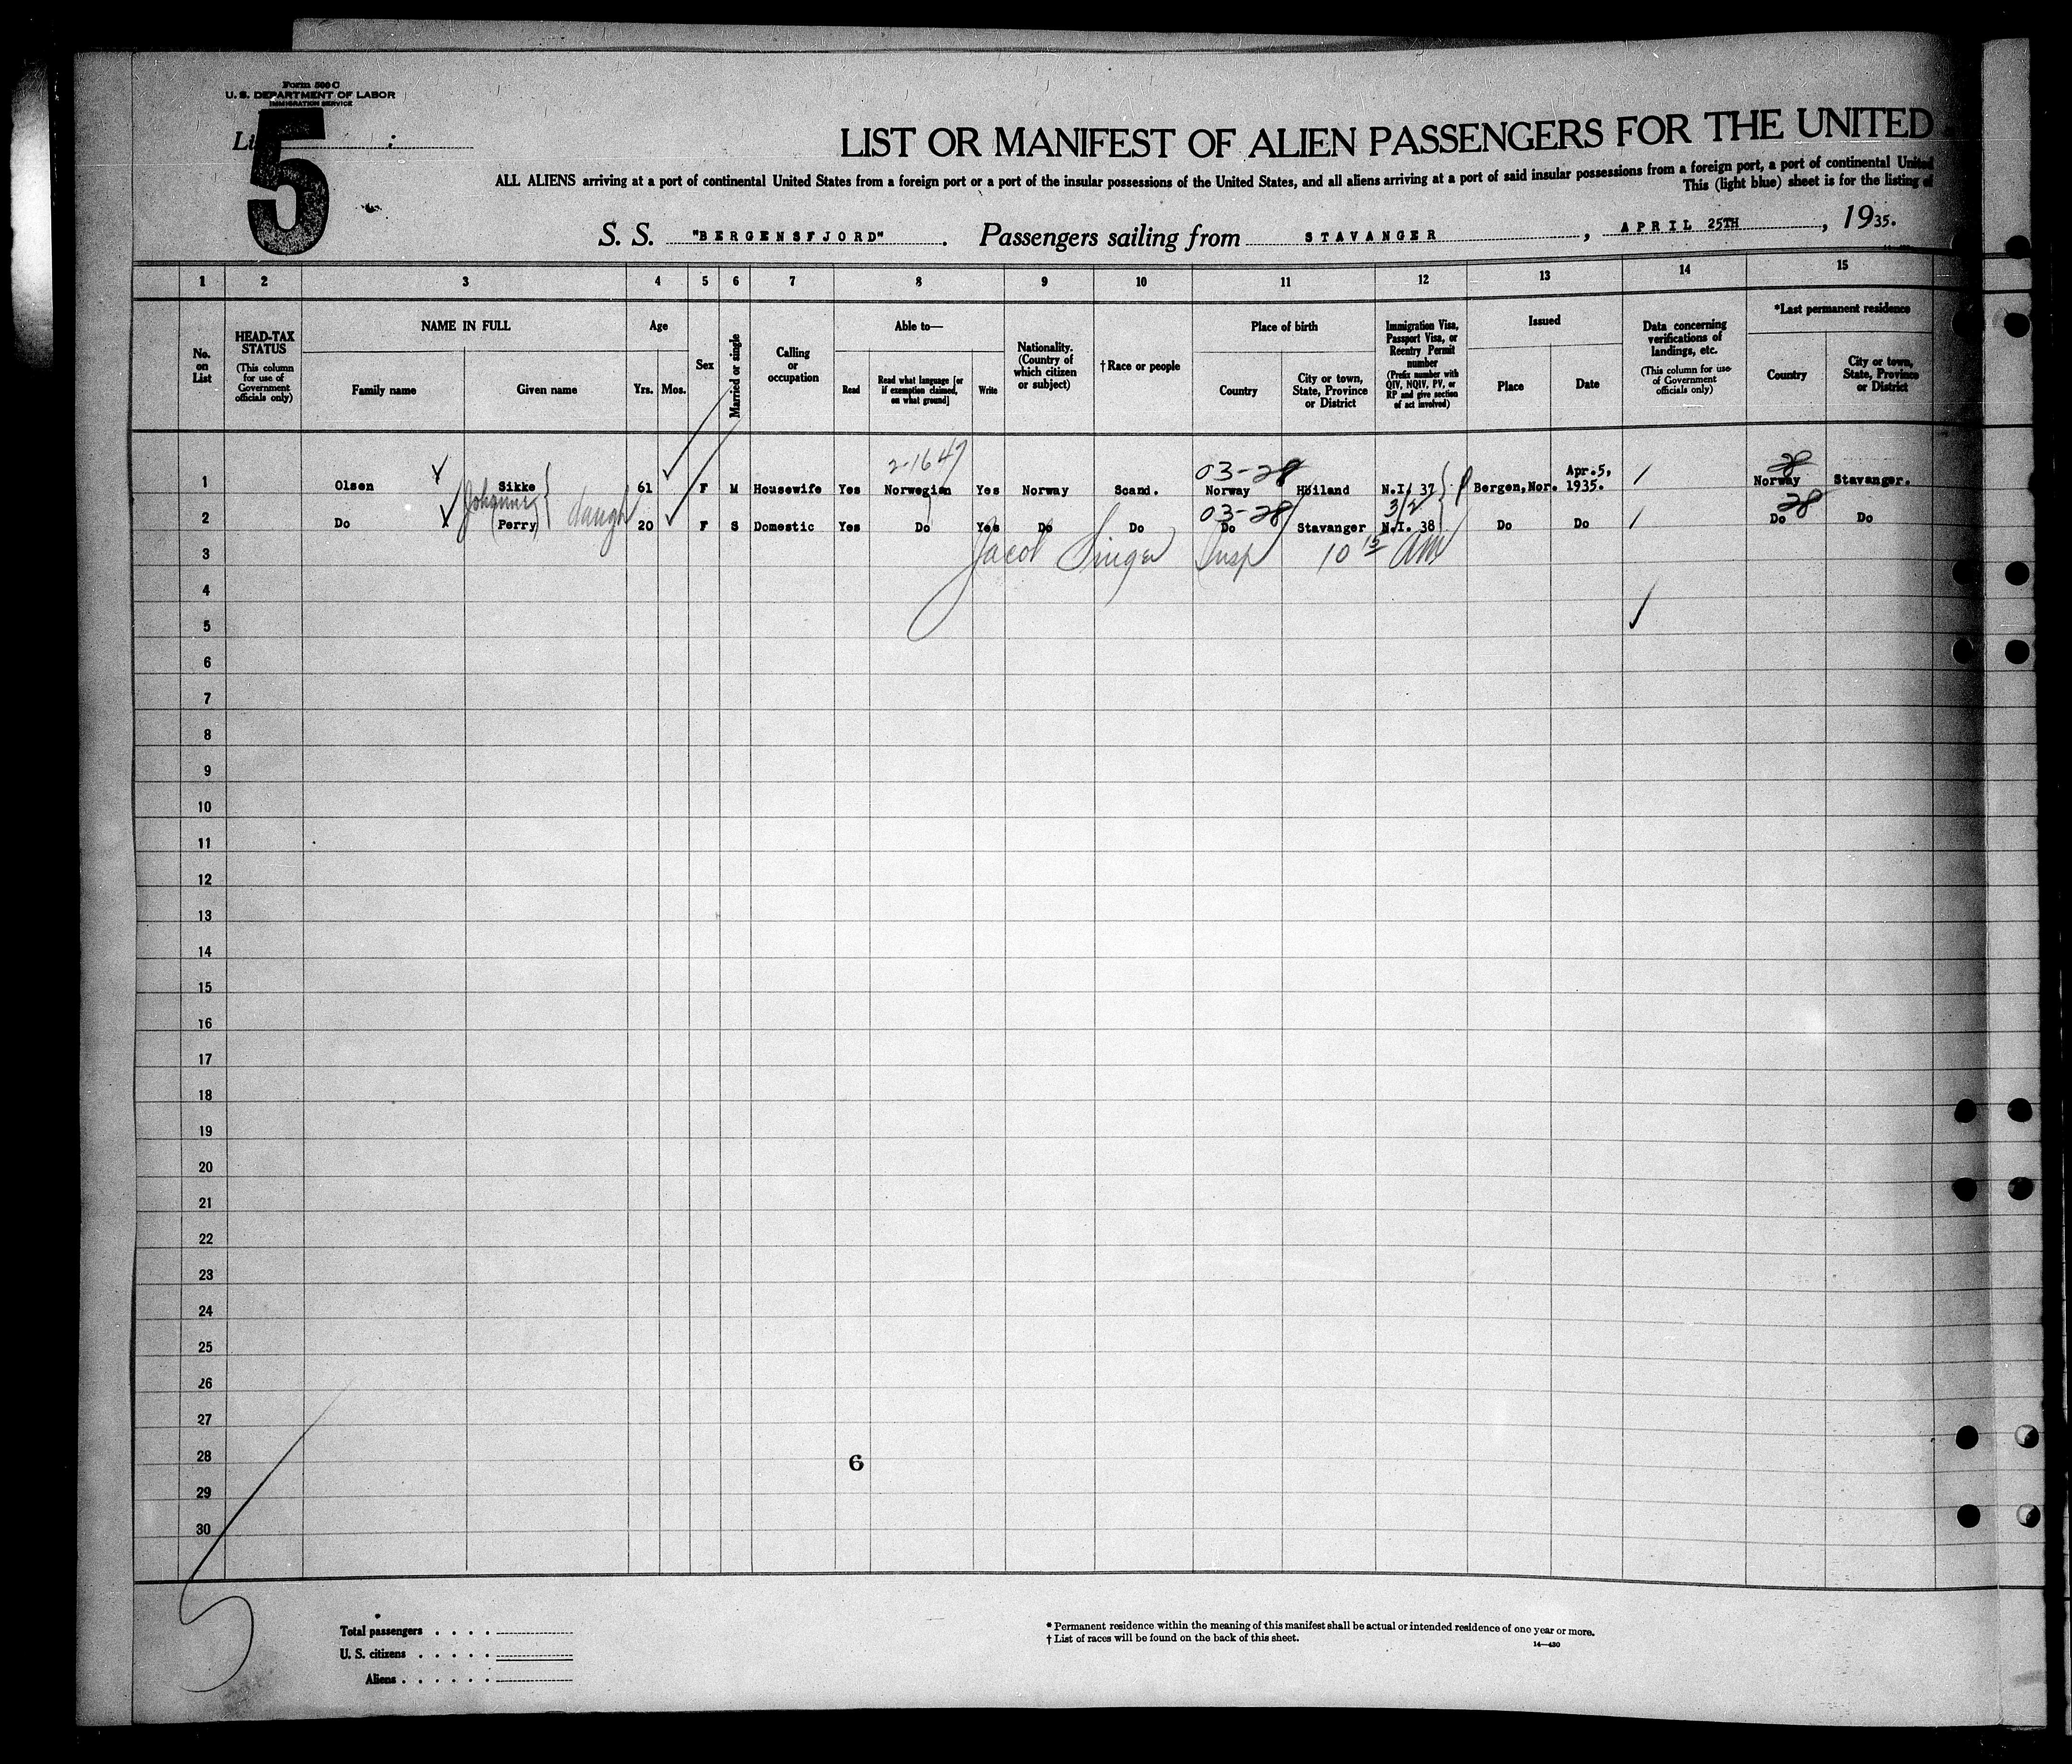 Form 500 C
U. S. DEPARTMENT OF LABOR
IMMIGRATION SERVICE
5
LIST OR MANIFEST OF ALIEN PASSENGERS FOR THE UNITED
ALL ALIENS arriving at a port of continental United States from a foreign port or a port of the insular possessions of the United States, and all aliens arriving at a port of said insular possessions from a foreign port, a port of continental United
This (light blue) sheet is for the listing of
S. S. "BERGENSFJORD". Passengers sailing from STAVANGER, APRIL 25TH, 1935.
1 2 3 4 5 6 7 8 9 10 11 12 13 14 15
No. on List
HEAD-TAX STATUS
(This column for use of Government officials only)
NAME IN FULL
Family name
Given name
Age
Yrs.
Mos.
Sex
Married or single
Calling or occupation
Able to—
Read
Read what language [or if exemption claimed, on what ground]
Write
Nationality. (Country of which citizen or subject)
† Race or people
Place of birth
Country
City or town, State, Province or District
Immigration Visa, Passport Visa, or Reentry Permit number
(Prefix number with QIV, NQIV, PV, or RP and give section of act involved)
Issued
Place
Date
Data concerning verifications of landings, etc.
(This column for use of Government officials only)
*Last permanent residence
Country
City or town, State, Province or District
2-1647
03-28
28
1 Olsen Sikke 61 F M Housewife Yes Norwegian Yes Norway Scand. Norway Höiland N.I. 37 Bergen, Nor. Apr.5, 1935. Norway Stavanger.
Johanne
daugh
03-28
3/2
28
2 Do (Perry) 20 F S Domestic Yes Do Yes Do Do Do Stavanger N.I. 38 Do Do Do Do
Jacob Singer Insp 10 15 AM
3
4
5
6
7
8
9
10
11
12
13
14
15
16
17
18
19
20
21
22
23
24
25
26
27
28
6
29
30
5
Total passengers
U. S. citizens
Aliens
* Permanent residence within the meaning of this manifest shall be actual or intended residence of one year or more.
† List of races will be found on the back of this sheet.
14—430